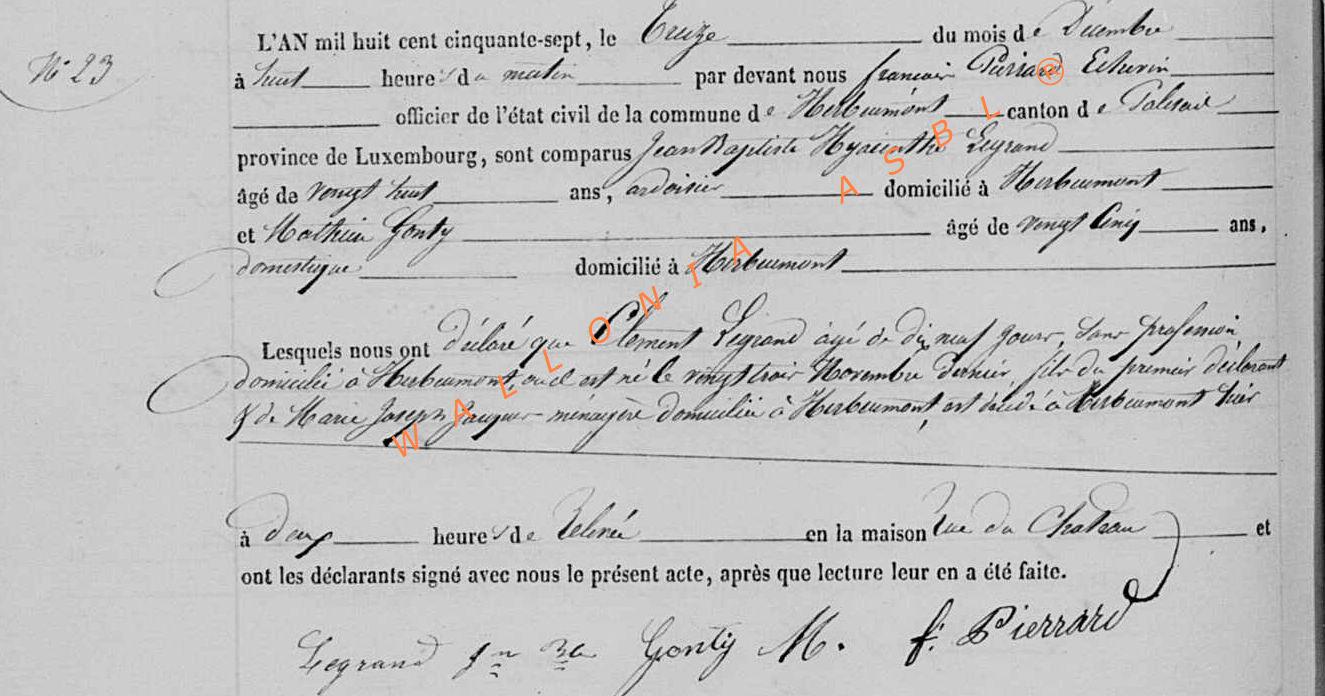 N° 23
L'AN mil huit cent cinquante-sept, le Treize du mois de Décembre
à huit heures du matin par devant nous françois Pierrard Echevin
officier de l'état civil de la commune de Herbeumont canton de Paliseul
province de Luxembourg, sont comparus Jean Baptiste Hyacinthe Legrand
âgé de vingt huit ans, ardoisier domicilié à Herbeumont
et Mathieu Gonty âgé de vingt Cinq ans,
domestique domicilié à Herbeumont
Lesquels nous ont déclaré que Clément Legrand âgé de dix neuf jours, sans profession
domicilié à Herbeumont, où il est né le vingt trois Novembre dernier, fils du premier déclarant
& de Marie Joseph Jacques ménagère domiciliée à Herbeumont, est décédé à Herbeumont hier
à deux heures de Relevée en la maison Rue du Chateau et
ont les déclarants signé avec nous le présent acte, après que lecture leur en a été faite.
Legrand Jn Bte Gonty M. f. Pierrard
WALLONIA ASBL ®